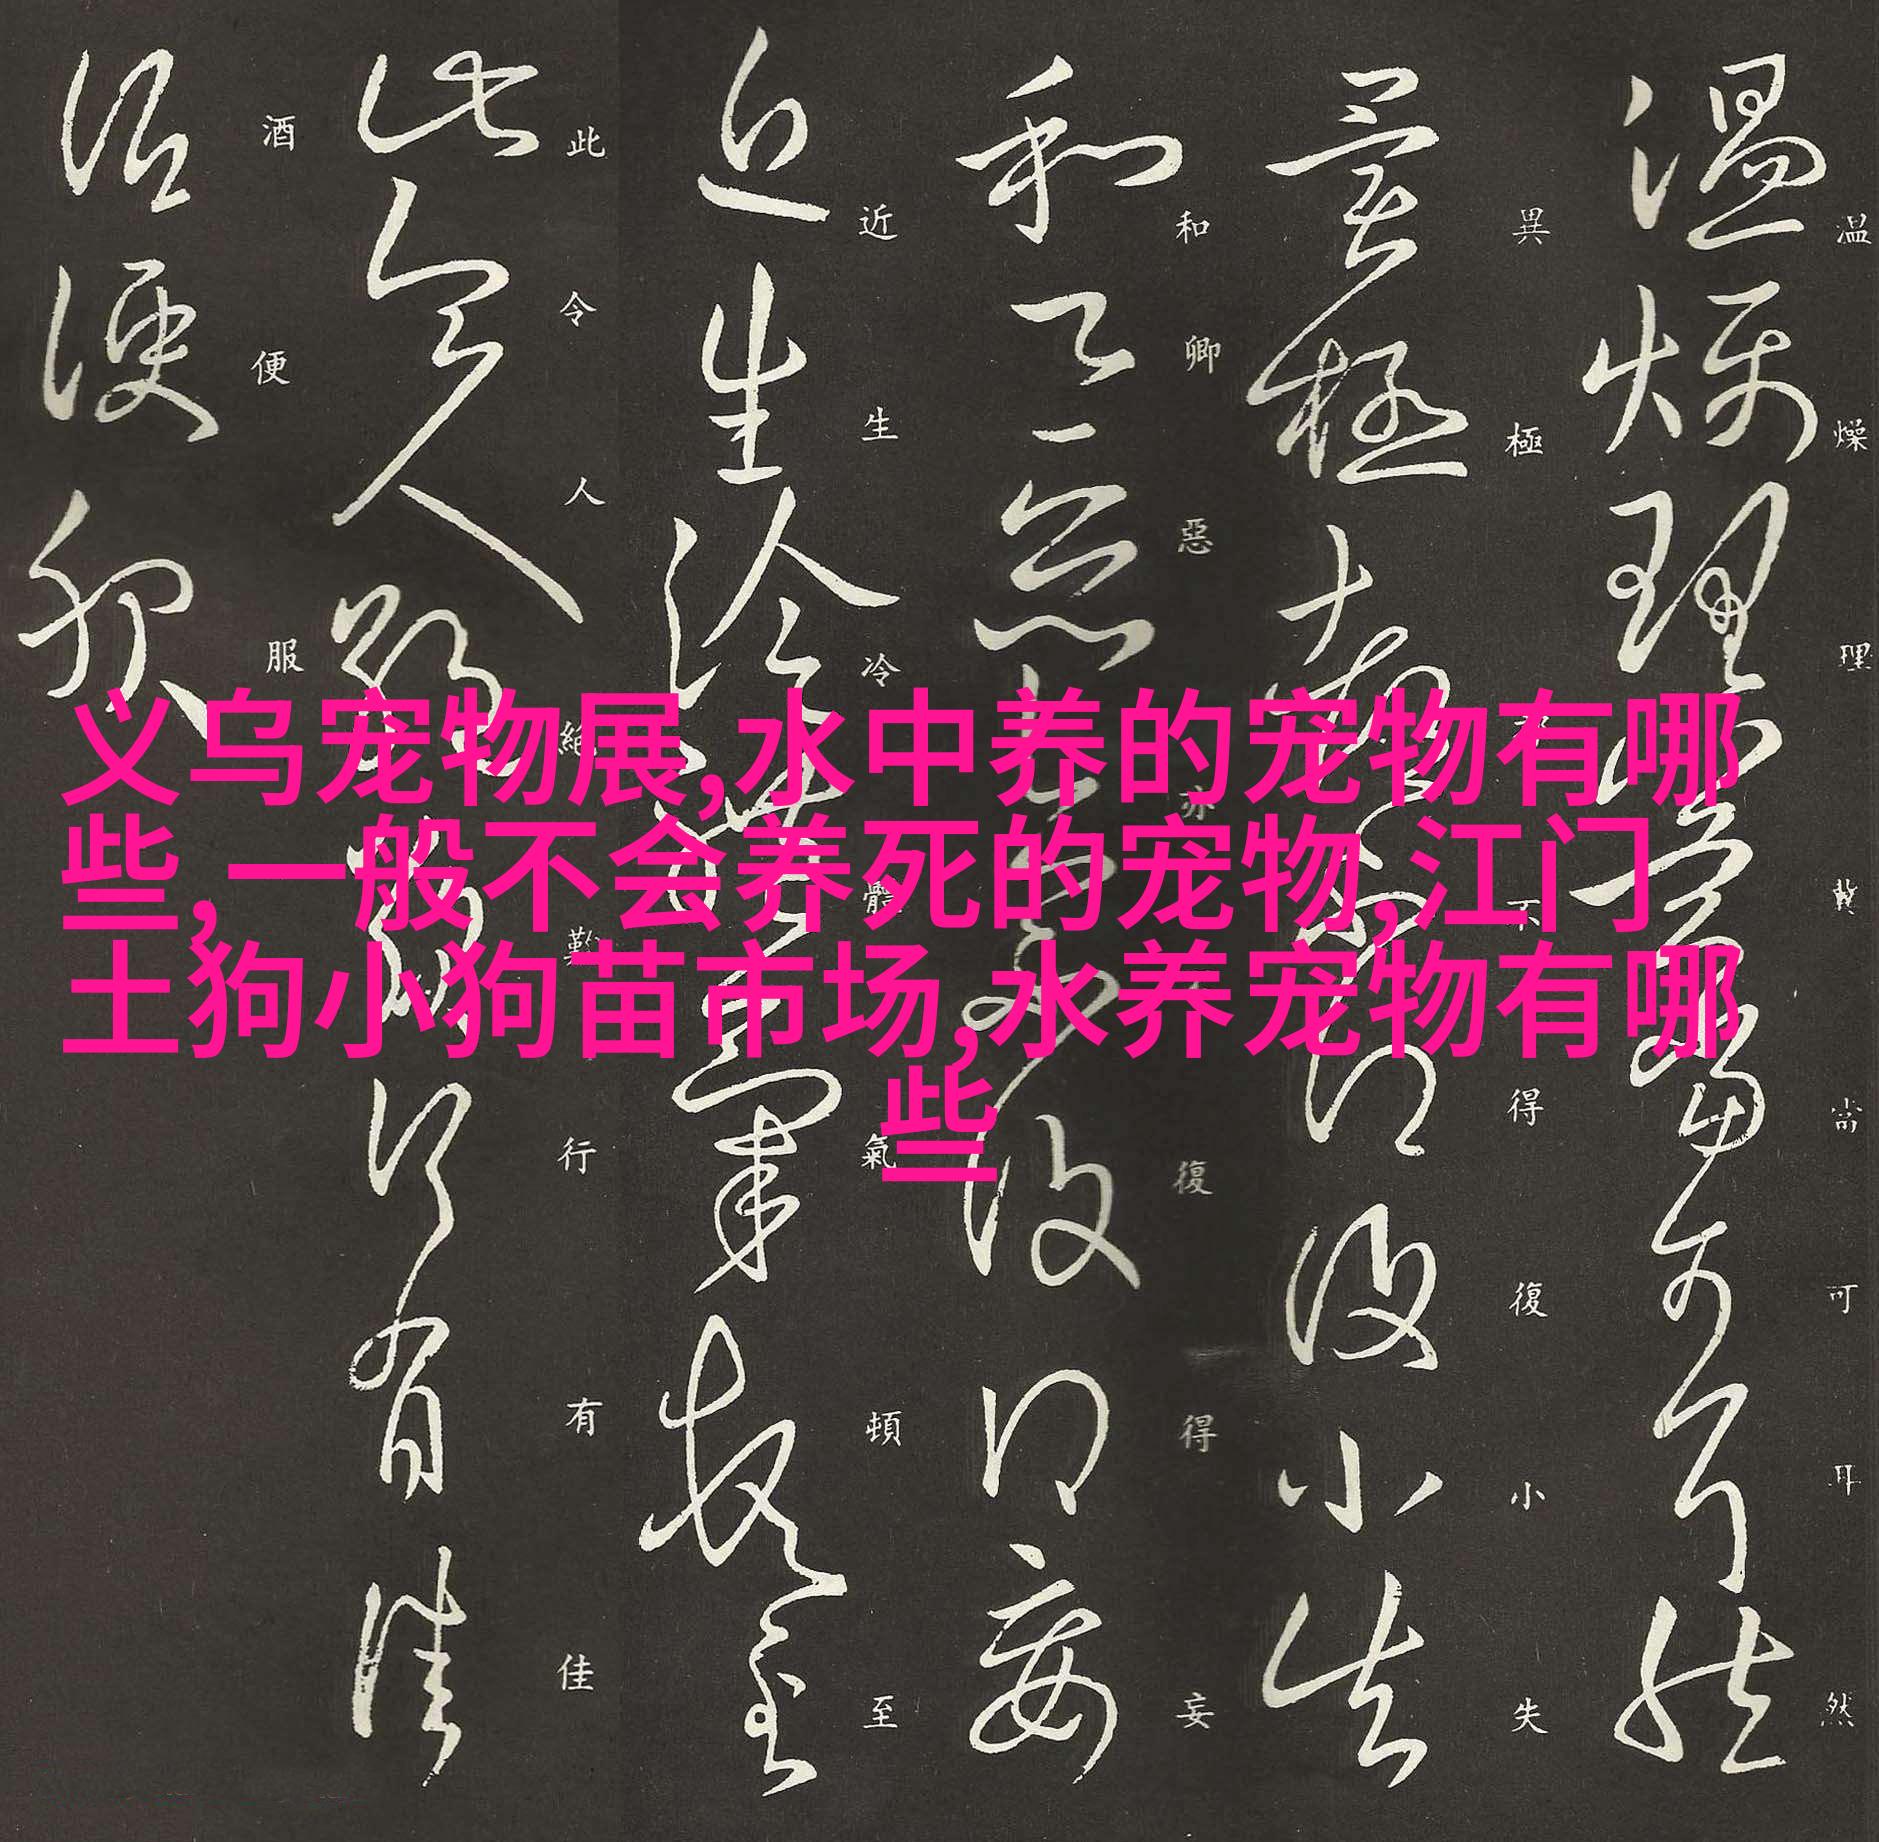 义乌宠物展,水中养的宠物有哪
些,一般不会养死的宠物,江门
土狗小狗苗市场,水养宠物有哪
些
温燥理冀當可耳然
異極不得復小失
和卿惡亦復得妄
近生冷體氣頓至
此令人絕歎行有佳
酒便服